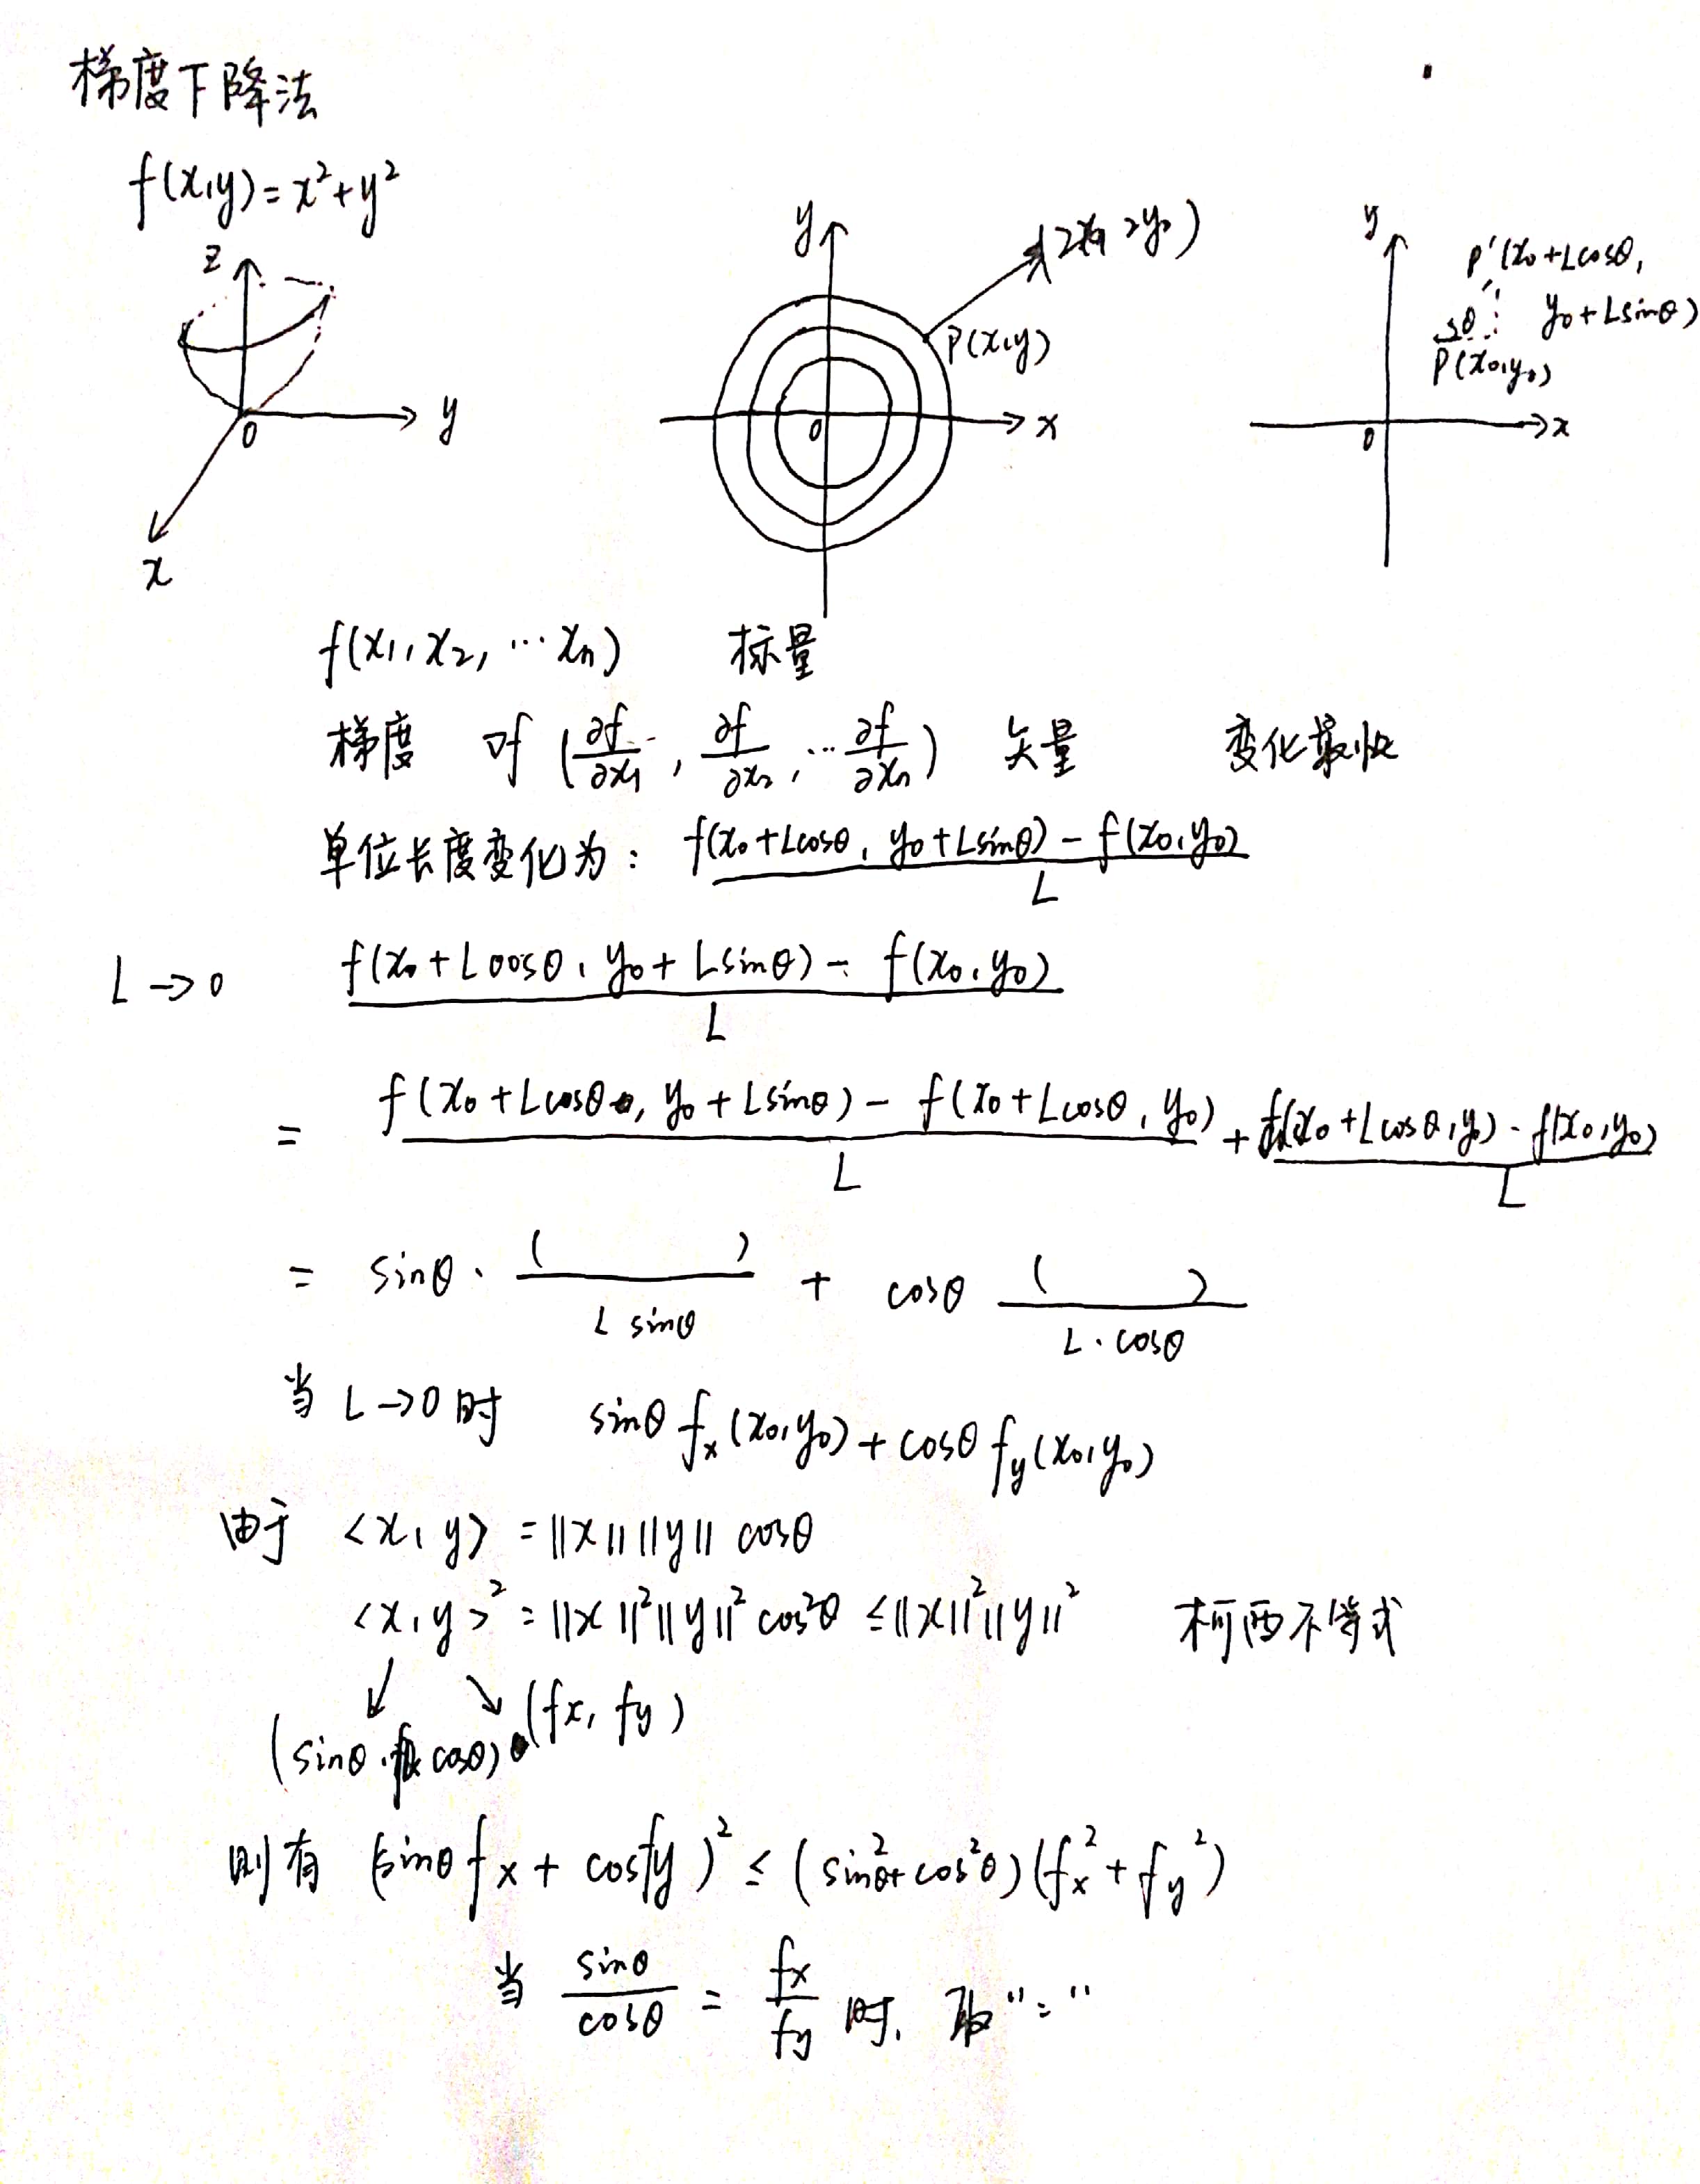 梯度下降法
f(x,y)=x²+y²
z
y
x
0
y
x
0
(2x, 2y)
P(x,y)
y
x
0
P'(x₀+Lcosθ,
y₀+Lsinθ)
θ
P(x₀,y₀)
f(x₁,x₂,…xₙ) 标量
梯度 ∇f (∂f/∂x₁, ∂f/∂x₂, …∂f/∂xₙ) 矢量 变化最快
单位长度变化为: f(x₀+Lcosθ, y₀+Lsinθ)-f(x₀,y₀) / L
L→0 f(x₀+Lcosθ, y₀+Lsinθ)-f(x₀,y₀) / L
= f(x₀+Lcosθ, y₀+Lsinθ)-f(x₀+Lcosθ, y₀) / L + f(x₀+Lcosθ,y₀)-f(x₀,y₀) / L
= sinθ·( ) / L sinθ + cosθ ( ) / L·cosθ
当 L→0时 sinθ fx(x₀,y₀)+cosθ fy(x₀,y₀)
由于 <x,y> = ||x|| ||y|| cosθ
<x,y>² = ||x||²||y||² cos²θ ≤ ||x||²||y||² 柯西不等式
(fx, fy)
(sinθ, cosθ)
则有 (sinθ fx + cos fy)² ≤ (sin²θ+cos²θ)(fx²+fy²)
当 sinθ/cosθ = fx/fy 时, 取"="